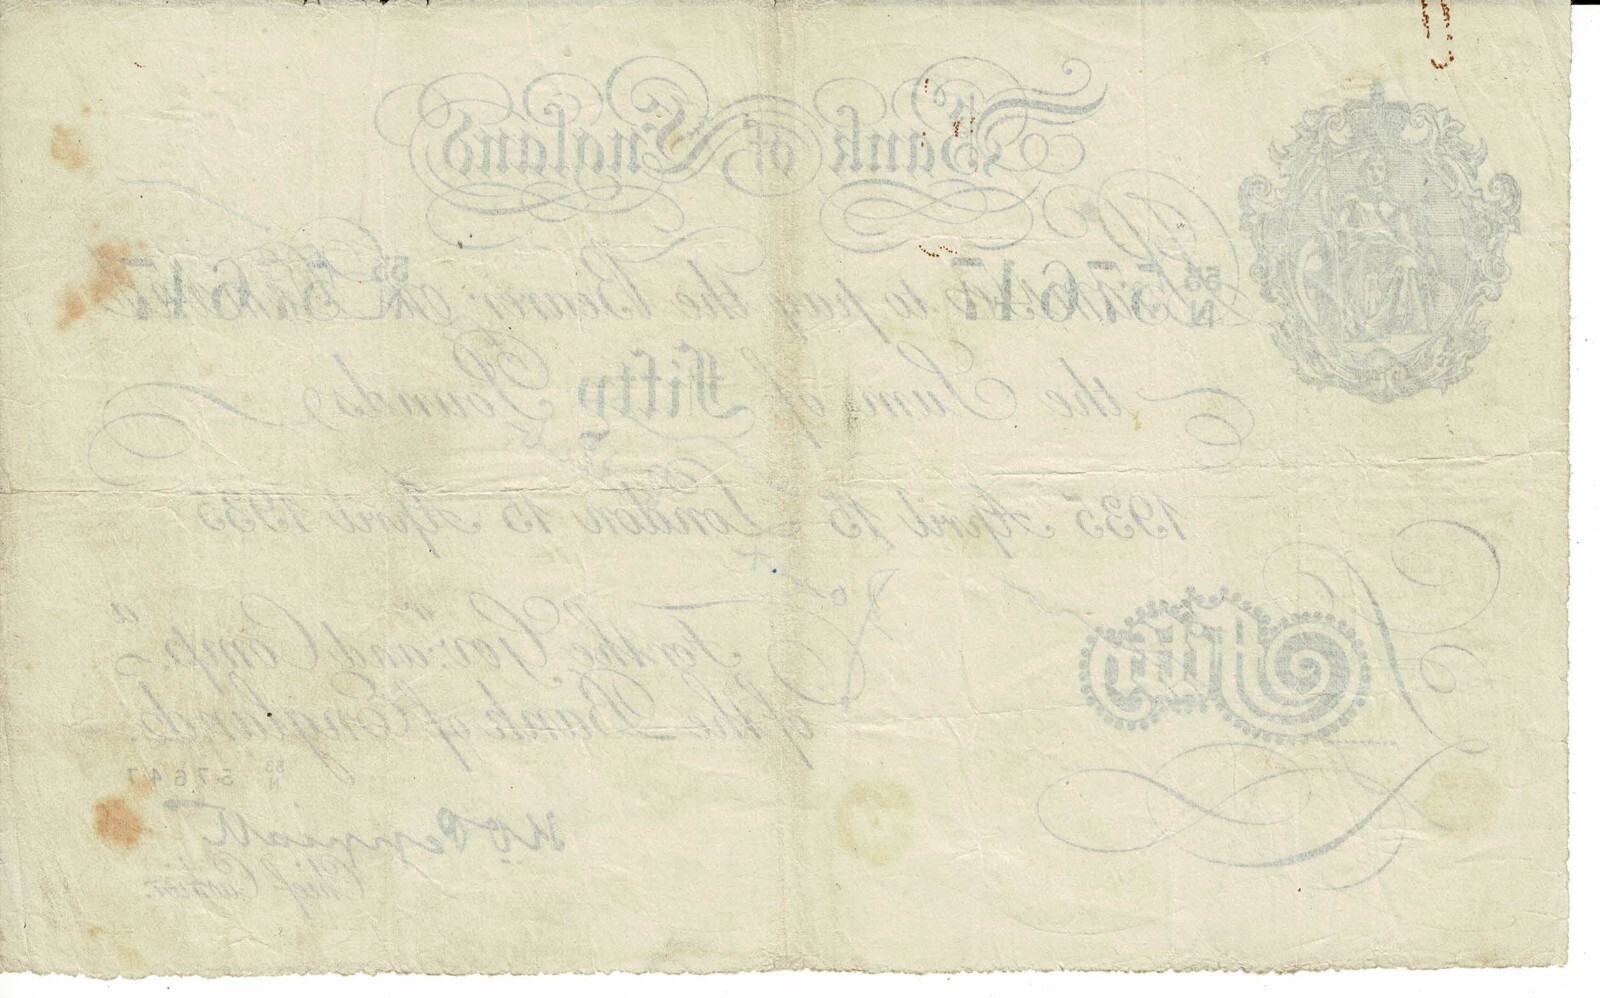 Bank of England
55/N 57647 55/N 57647
to pay the Bearer on
the Sum of Fifty Pounds
1935 April 15 London 15 April 1935
For the Gov.r and Comp.a
of the Bank of England.
Fifty
57647
K O Peppiatt
Chief Cashier.